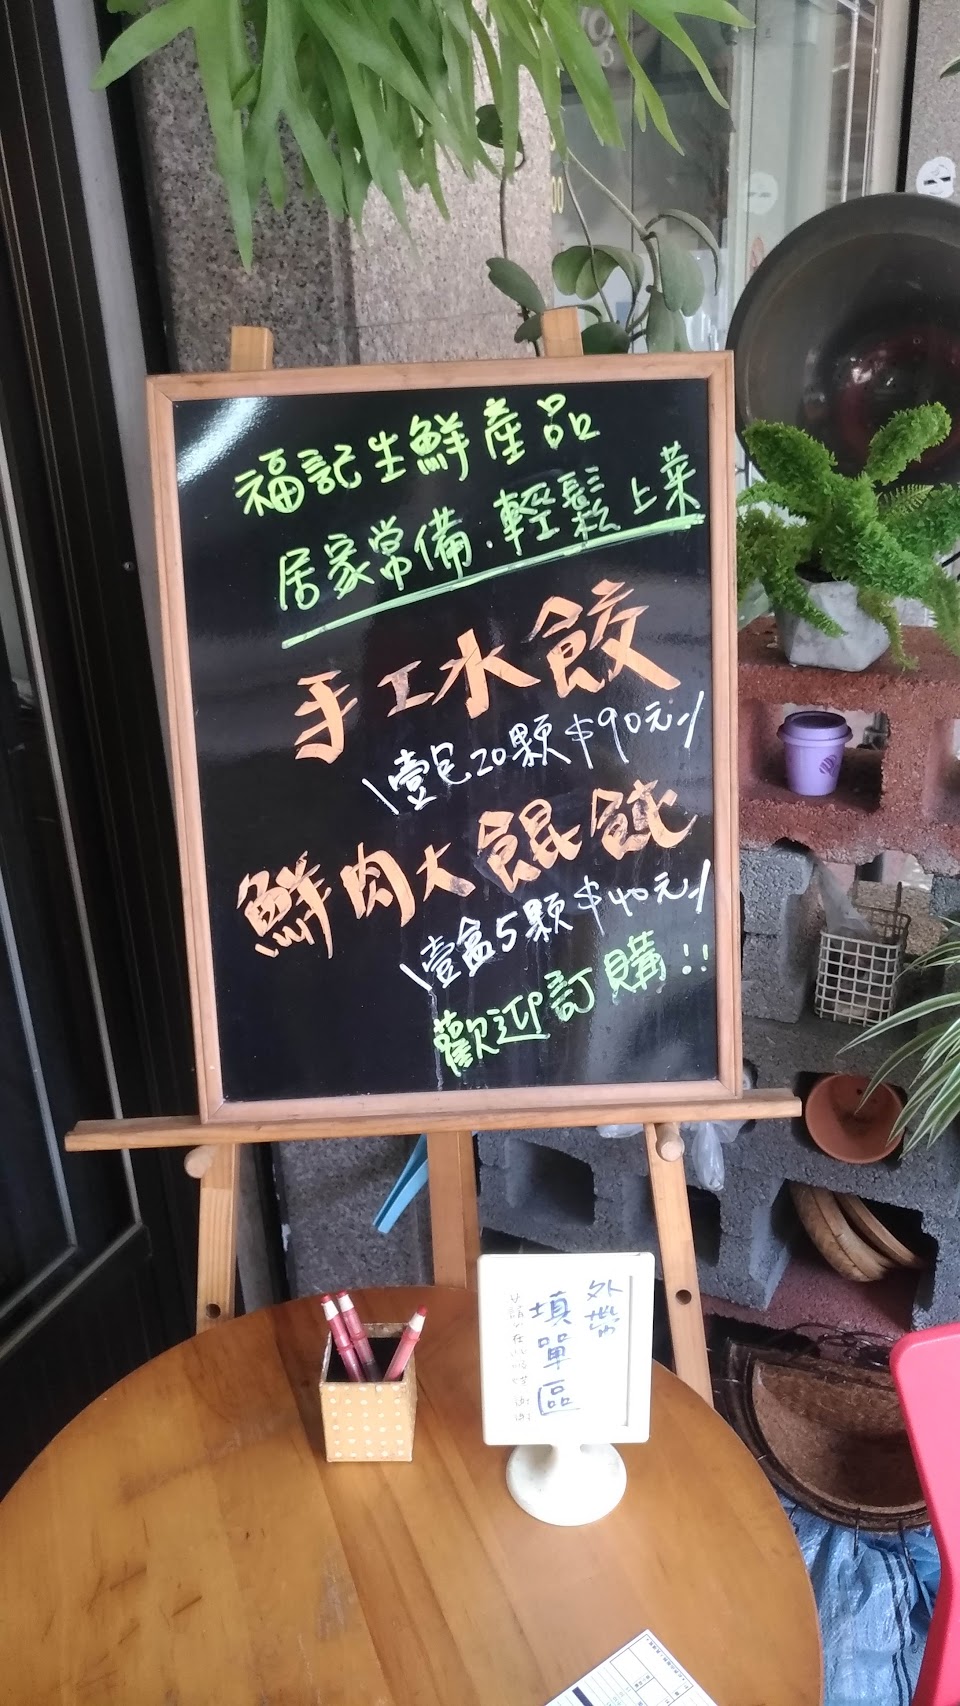 福記生鮮產品
居家常備.輕鬆上菜
手工水餃
\壹包20顆$90元/
鮮肉大餛飩
\壹盒5顆$40元/
歡迎訂購!!
外帶
填單區